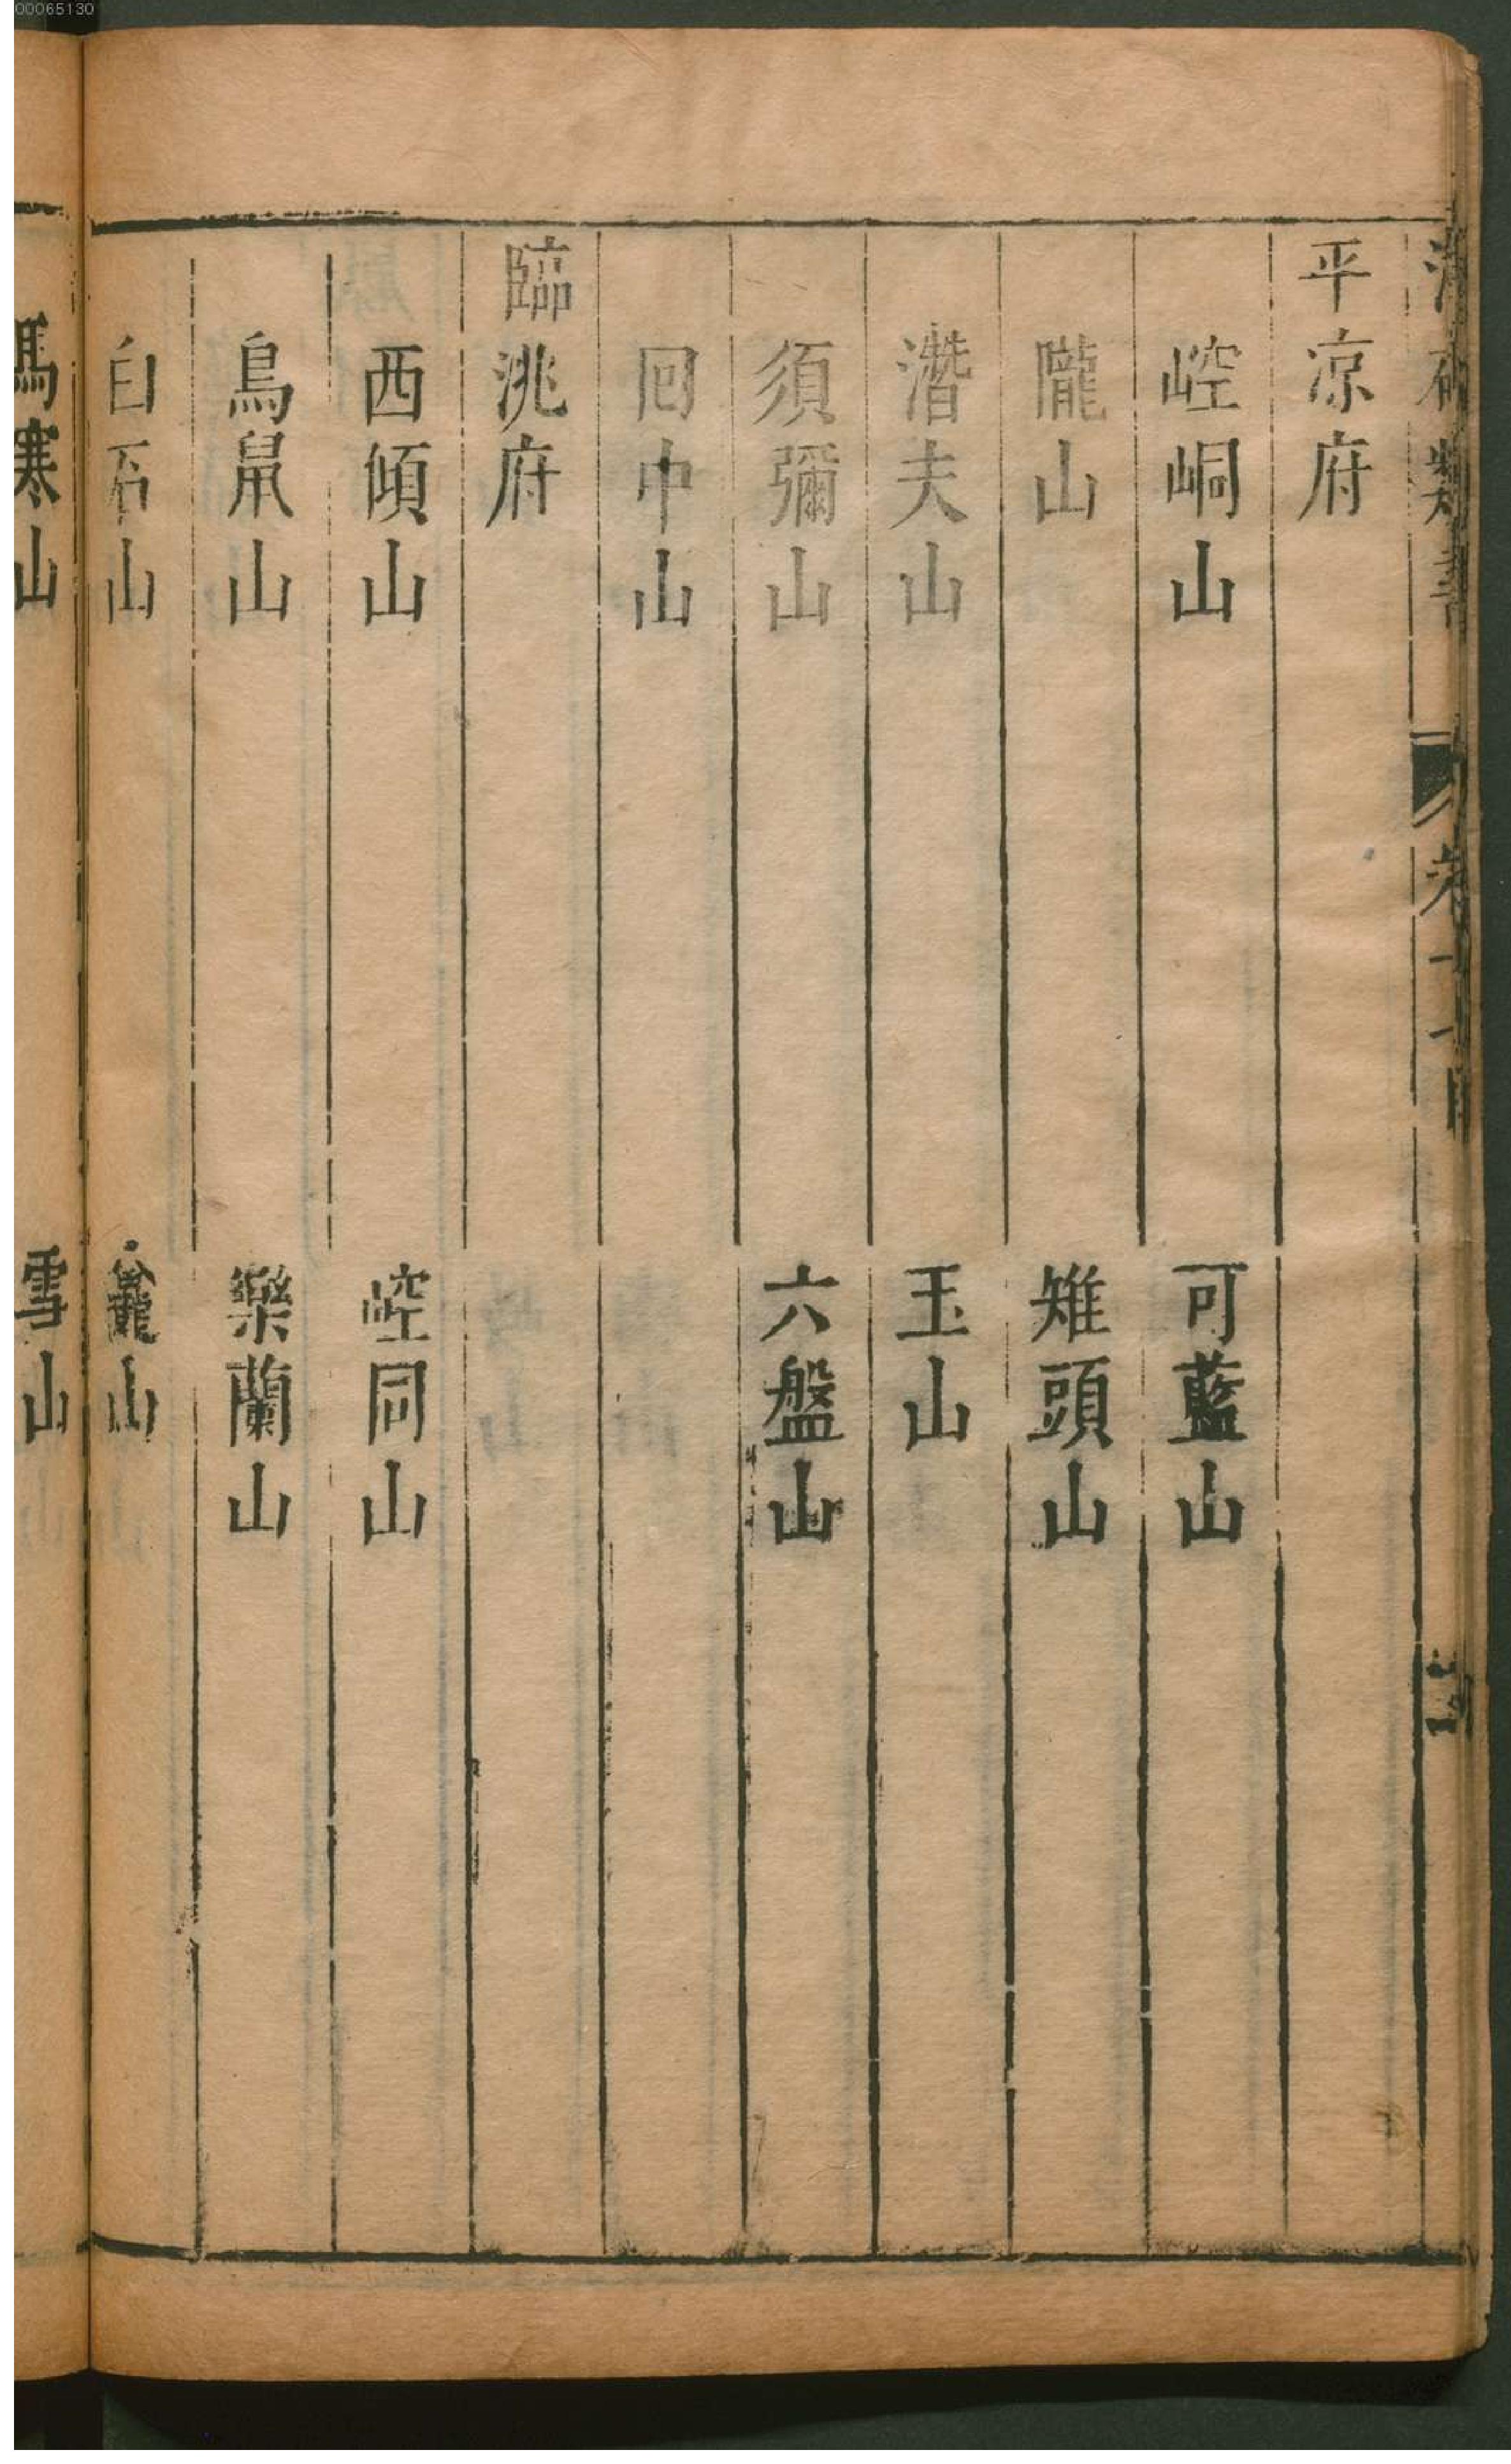 00065130
平凉府
崆峒山　可藍山
隴山　雉頭山
潛夫山　玉山
須彌山　六盤山
回中山
臨洮府
西傾山　崆同山
鳥鼠山　樂蘭山
白石山　山
馬寒山　雪山